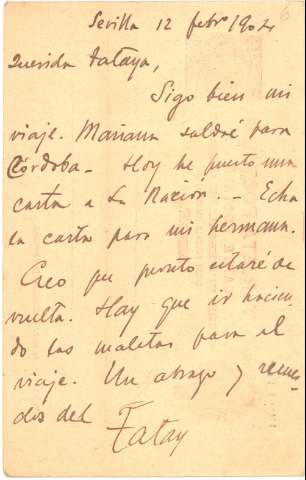 Sevilla 12 febro 1904
6
Querida Tataya,
Sigo bien mi
viaje. Mañana saldré para
Córdoba - Hoy he puesto una
carta a La Nación. - Echa
la carta para mi hermana.
Creo que pronto estaré de
vuelta. Hay que ir hacien-
do las maletas para el
viaje. Un abrazo y recuer-
dos del
Tatay